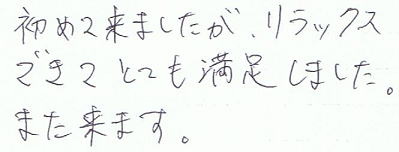 初めて来ましたが、リラックス
できてとても満足しました。
また来ます。